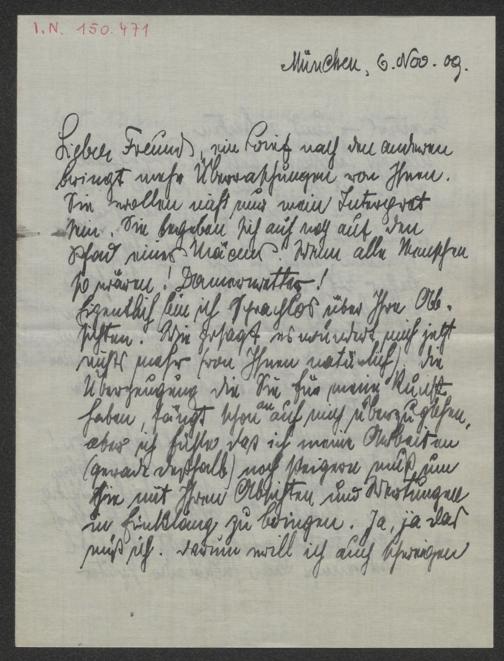 I.N. 150.471
München, 6. Nov. 09.
Lieber Freund, ein Brief nach den anderen
bringt mehr Überraschungen von Ihnen.
Sie wollen nicht nur mein Interpret
sein. Sie begeben sich auch noch auf den
Pfad eines Mäcens! Wenn alle Menschen
so wären! Donnerwetter!
Eigentlich bin ich sprachlos über Ihre Ab-
sichten. Wie gesagt es wundert mich jetzt
nichts mehr (von Ihnen natürlich) die
Überzeugung die Sie für meine Kunst
haben, fängt schon an auch auf mich überzugehen,
aber ich fühle daß ich meine Arbeiten
(gerade deshalb) noch steigern muß um
sie mit Ihren Absichten und Wertungen
in Einklang zu bringen. Ja, ja das
muß ich. Darum will ich auch schweigen